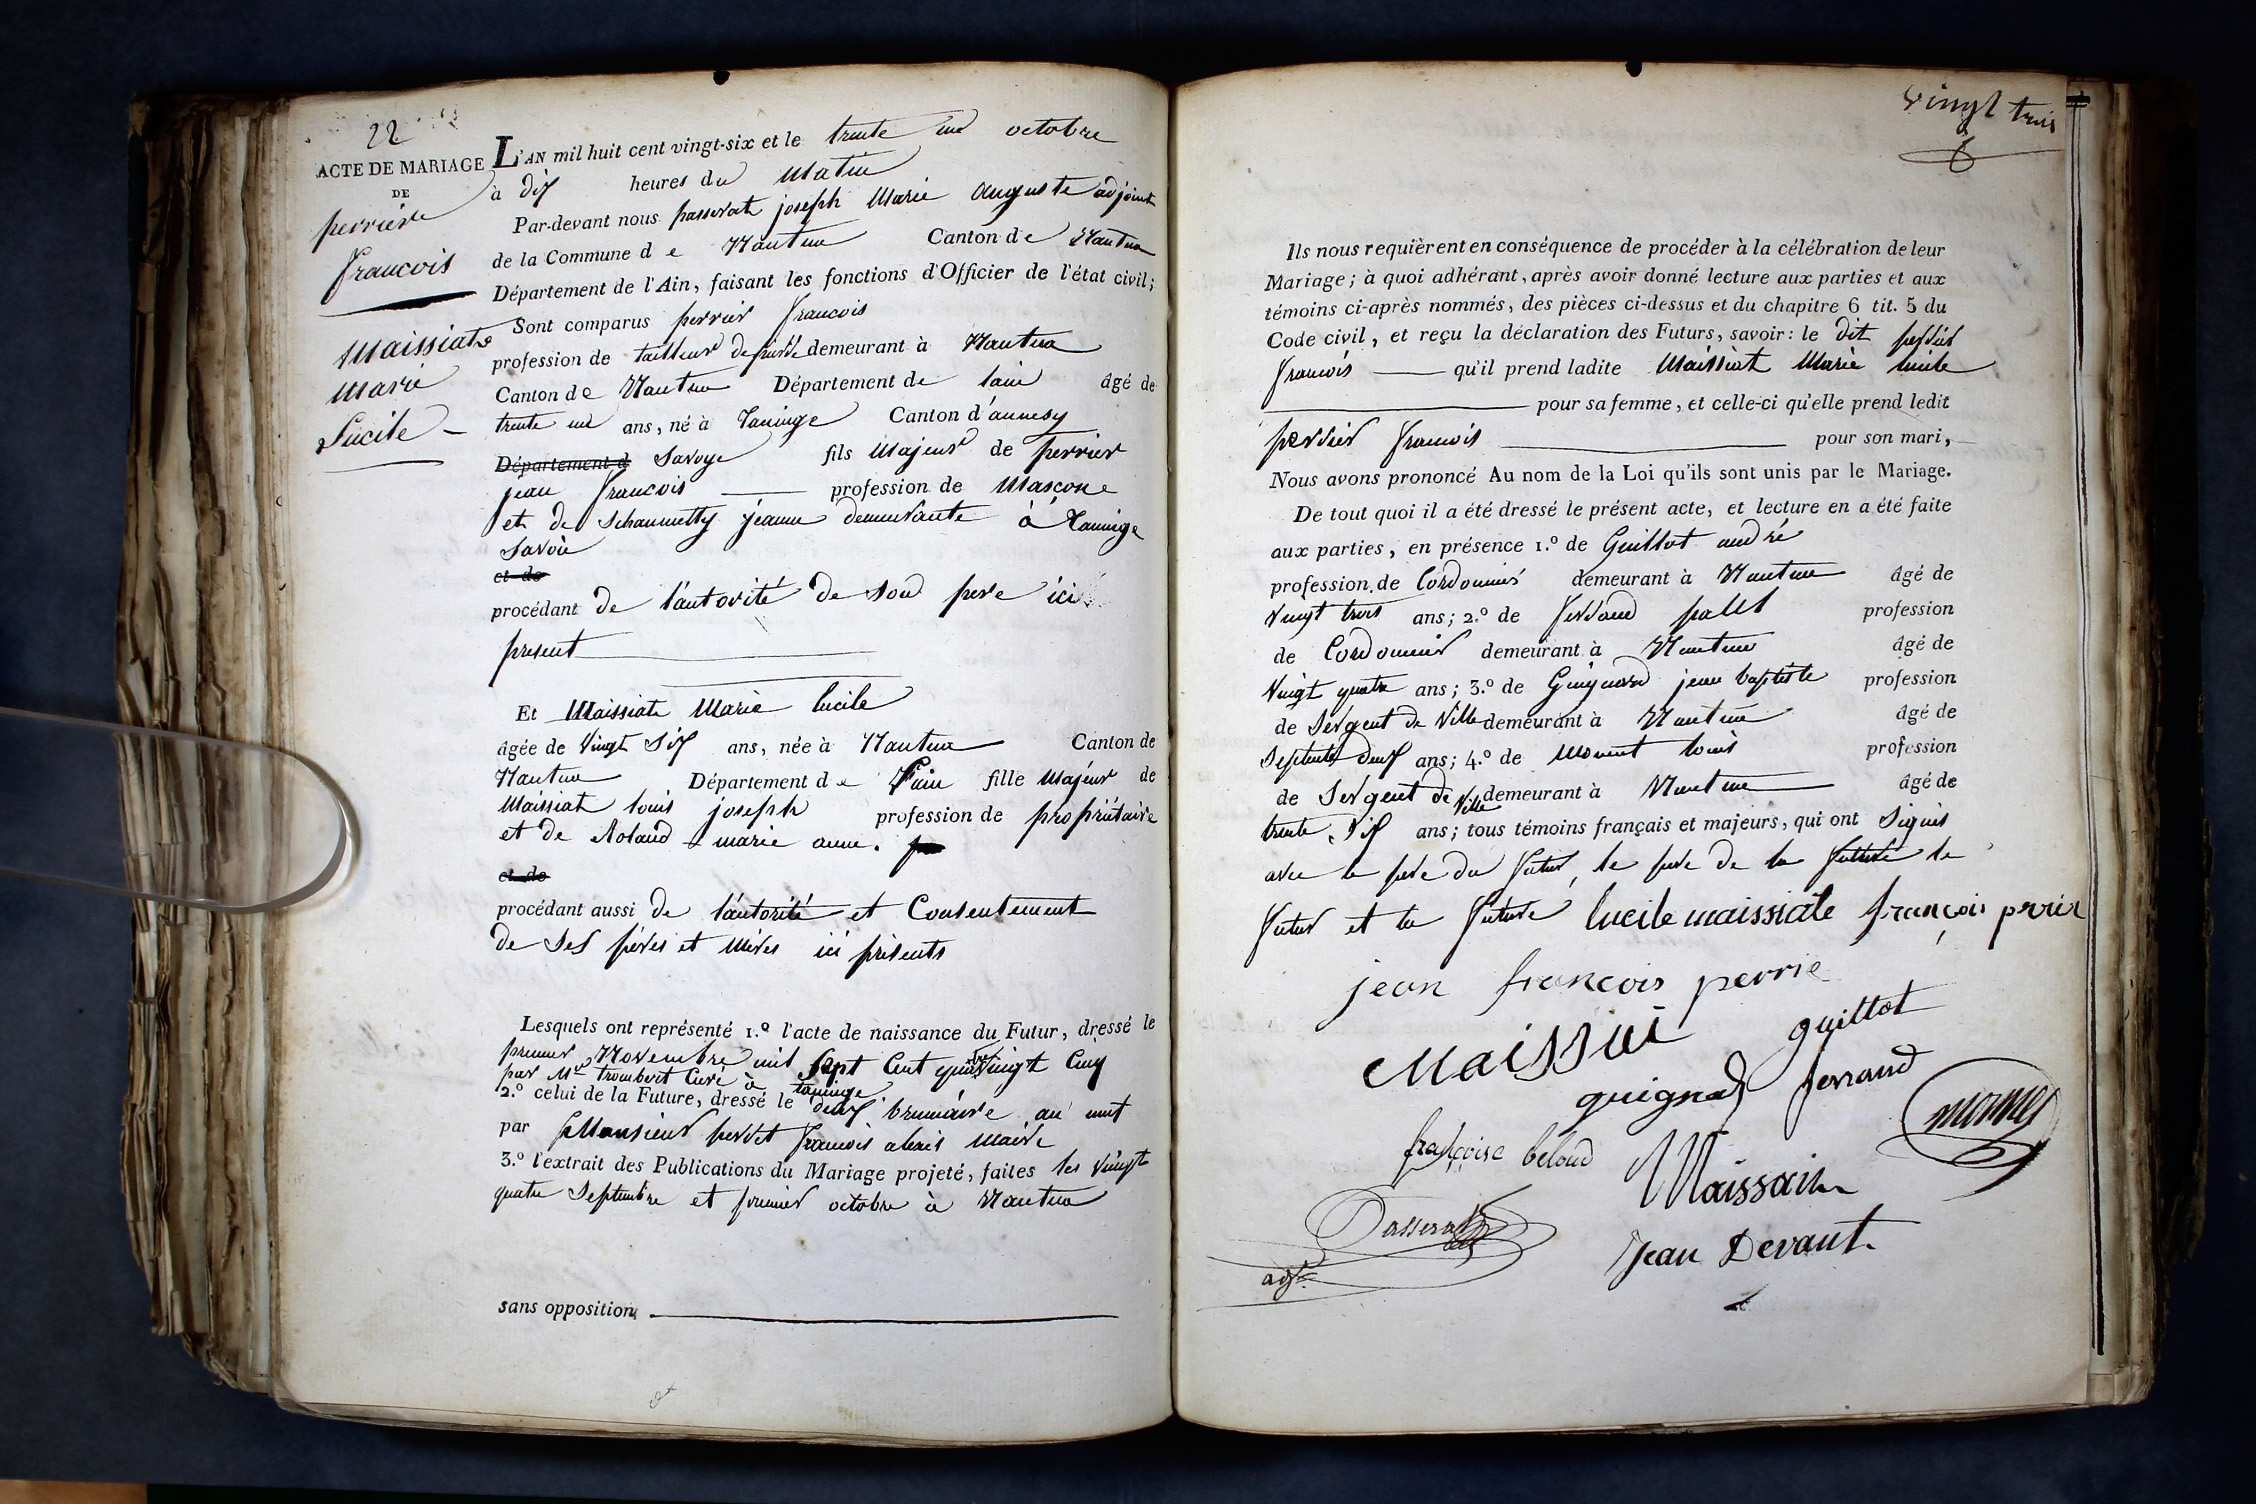 22
ACTE DE MARIAGE
DE
perrier
francois
Maissiat
Marie
Lucile
L'AN mil huit cent vingt-six et le trente un octobre
à dix heures du Matin
Par-devant nous passerat joseph Marie auguste adjoint
de la Commune de Nantua Canton de Nantua
Département de l'Ain, faisant les fonctions d'Officier de l'état civil;
Sont comparus perrier francois
profession de tailleur de pierre demeurant à Nantua
Canton de Nantua Département de lain âgé de
trente un ans, né à Taninge Canton d'annesy
Département d Savoye fils Majeur de perrier
jean francois profession de Maçon
et de jeanne demeurante à Taninge
Savoie
et de
procédant de l'autorité de son pere ici
present
Et Maissiat Marie lucile
âgée de Vingt Six ans, née à Nantua Canton de
Nantua Département de l'ain fille Majeur de
Maissiat louis joseph profession de propriétaire
et de Roland marie anne.
et de
procédant aussi de l'autorité et Consentement
de Ses péres et Méres ici présents
Lesquels ont représenté 1.º l'acte de naissance du Futur, dressé le
premier Novembre mil Sept Cent quatre Vingt Cinq
par Mr trombert Curé à taninge
2.º celui de la Future, dressé le deux brumaire an huit
par Monsieur perret francois alexis Maire
3.º l'extrait des Publications du Mariage projeté, faites les Vingt
quatre Septembre et premier octobre à Nantua
sans opposition
vingt trois
Ils nous requièrent en conséquence de procéder à la célébration de leur
Mariage; à quoi adhérant, après avoir donné lecture aux parties et aux
témoins ci-après nommés, des pièces ci-dessus et du chapitre 6 tit. 5 du
Code civil, et reçu la déclaration des Futurs, savoir: le dit perrier
francois qu'il prend ladite Maissiat Marie lucile
pour sa femme, et celle-ci qu'elle prend ledit
perrier francois pour son mari,
Nous avons prononcé Au nom de la Loi qu'ils sont unis par le Mariage.
De tout quoi il a été dressé le présent acte, et lecture en a été faite
aux parties, en présence 1.º de Guillot andré
profession de Cordonnier demeurant à Nantua âgé de
Vingt trois ans; 2.º de ferrand profession
de Cordonnier demeurant à Nantua âgé de
Vingt quatre ans; 3.º de Guignard jean baptiste profession
de Sergent de Ville demeurant à Nantua âgé de
Septente deux ans; 4.º de louis profession
de Sergent de Ville demeurant à Nantua âgé de
trente Six ans; tous témoins français et majeurs, qui ont Signés
avec le pere du futur, le pere de la future le
futur et la future lucile maissiate françois perrier
jean francois perrie
Maissiat guillot
guignard ferrand
françoise beloud
Maissain
Passerat
adjt
Jean Devaut.